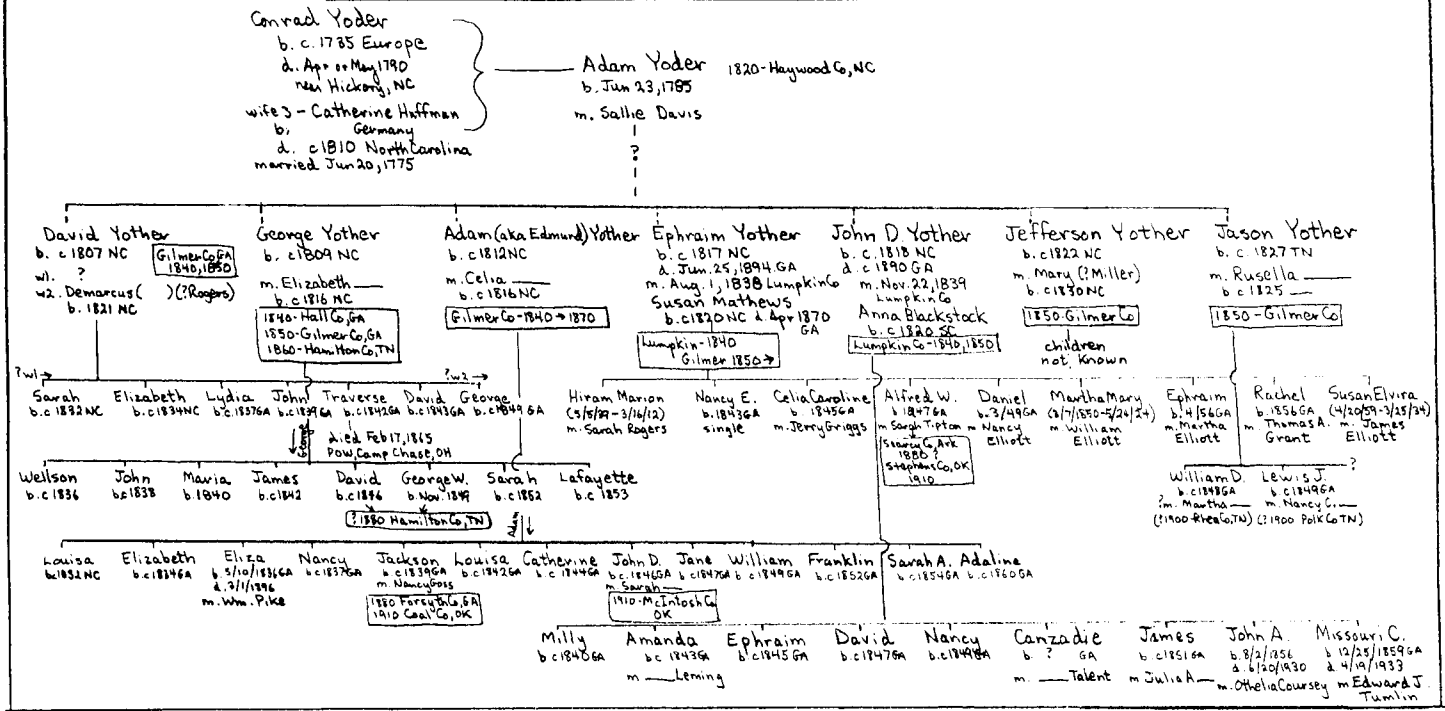 Conrad Yoder
b. c. 1735 Europe
d. Apr or May 1790
near Hickory, NC
wife 3 - Catherine Huffman
b. Germany
d. c1810 North Carolina
married Jun 20, 1775
Adam Yoder 1820-Haywood Co, NC
b. Jun 23, 1785
m. Sallie Davis
?
David Yother
b. c 1807 NC
w1. ?
w2. Demarcus ( ) (?Rogers)
b. 1821 NC
Gilmer Co GA
1840, 1850
George Yother
b. c1809 NC
m. Elizabeth ___
b. c 1816 NC
1840-Hall Co, GA
1850-Gilmer Co, GA
1860-Hamilton Co, TN
Adam (aka Edmund) Yother
b. c1812 NC
m. Celia ___
b. c 1816 NC
Gilmer Co - 1840 → 1870
Ephraim Yother
b. c 1817 NC
d. Jun. 25, 1894 GA
m. Aug. 1, 1838 Lumpkin Co
Susan Mathews
b. c1820 NC d. Apr 1870
GA
Lumpkin - 1840
Gilmer 1850 →
John D. Yother
b. c. 1818 NC
d. c 1890 GA
m. Nov. 22, 1839
Lumpkin Co
Anna Blackstock
b. c 1820 SC
Lumpkin Co - 1840, 1850
Jefferson Yother
b. c 1822 NC
m. Mary (?Miller)
b. c 1830 NC
1850-Gilmer Co
children
not known
Jason Yother
b. c. 1827 TN
m. Rusella ___
b c 1825 ___
1850 - Gilmer Co
?w1→ ?w2→
Sarah
b. c 1832 NC
Elizabeth
b. c 1834 NC
Lydia
b. c. 1837 GA
John
b. c 1839 GA
Traverse
b. c 1842 GA
died Feb 17, 1865
POW, Camp Chase, OH
David
b. c 1843 GA
George
b. c 1849 GA
Hiram Marion
(5/5/39 - 3/16/12)
m. Sarah Rogers
Nancy E.
b. 1843 GA
single
Celia Caroline
b. 1845 GA
m. Jerry Griggs
Alfred W.
b 1847 GA
m Sarah Tipton
Searcy Co, Ark
1880 ?
Stephens Co, OK
1910
Daniel
b. 3/49 GA
m Nancy
Elliott
Martha Mary
m. William
Elliott
Ephraim
b. 4/56 GA
m. Martha
Elliott
Rachel
b. 1856 GA
m. Thomas A.
Grant
Susan Elvira
(4/20/59 - 3/25/34)
m. James
Elliott
George ↓
Wellson
b. c 1836
John
b. c 1838
Maria
b. 1840
James
b. c 1842
David
b. c 1846
George W.
b. Nov. 1849
Sarah
b. c 1852
Lafayette
b. c 1853
?1880 Hamilton Co, TN
William D.
b. c 1848 GA
?m. Martha ___
(?1900 Rhea Co, TN)
Lewis J.
b. c 1849 GA
m. Nancy C. ___
(?1900 Polk Co TN)
?
Adam ↓
Louisa
b c 1832 NC
Elizabeth
b. c 1834 GA
Eliza
b. 5/10/1836 GA
d. 2/1/1896
m. Wm. Pike
Nancy
b c 1837 GA
Jackson
b. c 1839 GA
m. Nancy Goss
1880 Forsyth Co, GA
1910 Coal Co, OK
Louisa
b. c 1842 GA
Catherine
b. c 1844 GA
John D.
b. c. 1846 GA
m. Sarah ___
1910-McIntosh Co
OK
Jane
b c 1847 GA
William
b c 1849 GA
Franklin
b. c 1852 GA
Sarah A.
b. c 1854 GA
Adaline
b. c 1860 GA
Milly
b c 1840 GA
Amanda
b c 1843 GA
m ___ Leming
Ephraim
b. c 1845 GA
David
b. c 1847 GA
Nancy
b. c 1849 GA
Canzadie
b. ? GA
m. ___ Talent
James
b. c 1851 GA
m Julia A ___
John A.
b. 8/2/1856
d. 6/20/1930
m. Othelia Coursey
Missouri C.
b 12/25/1859 GA
d. 4/19/1933
m Edward J.
Tumlin